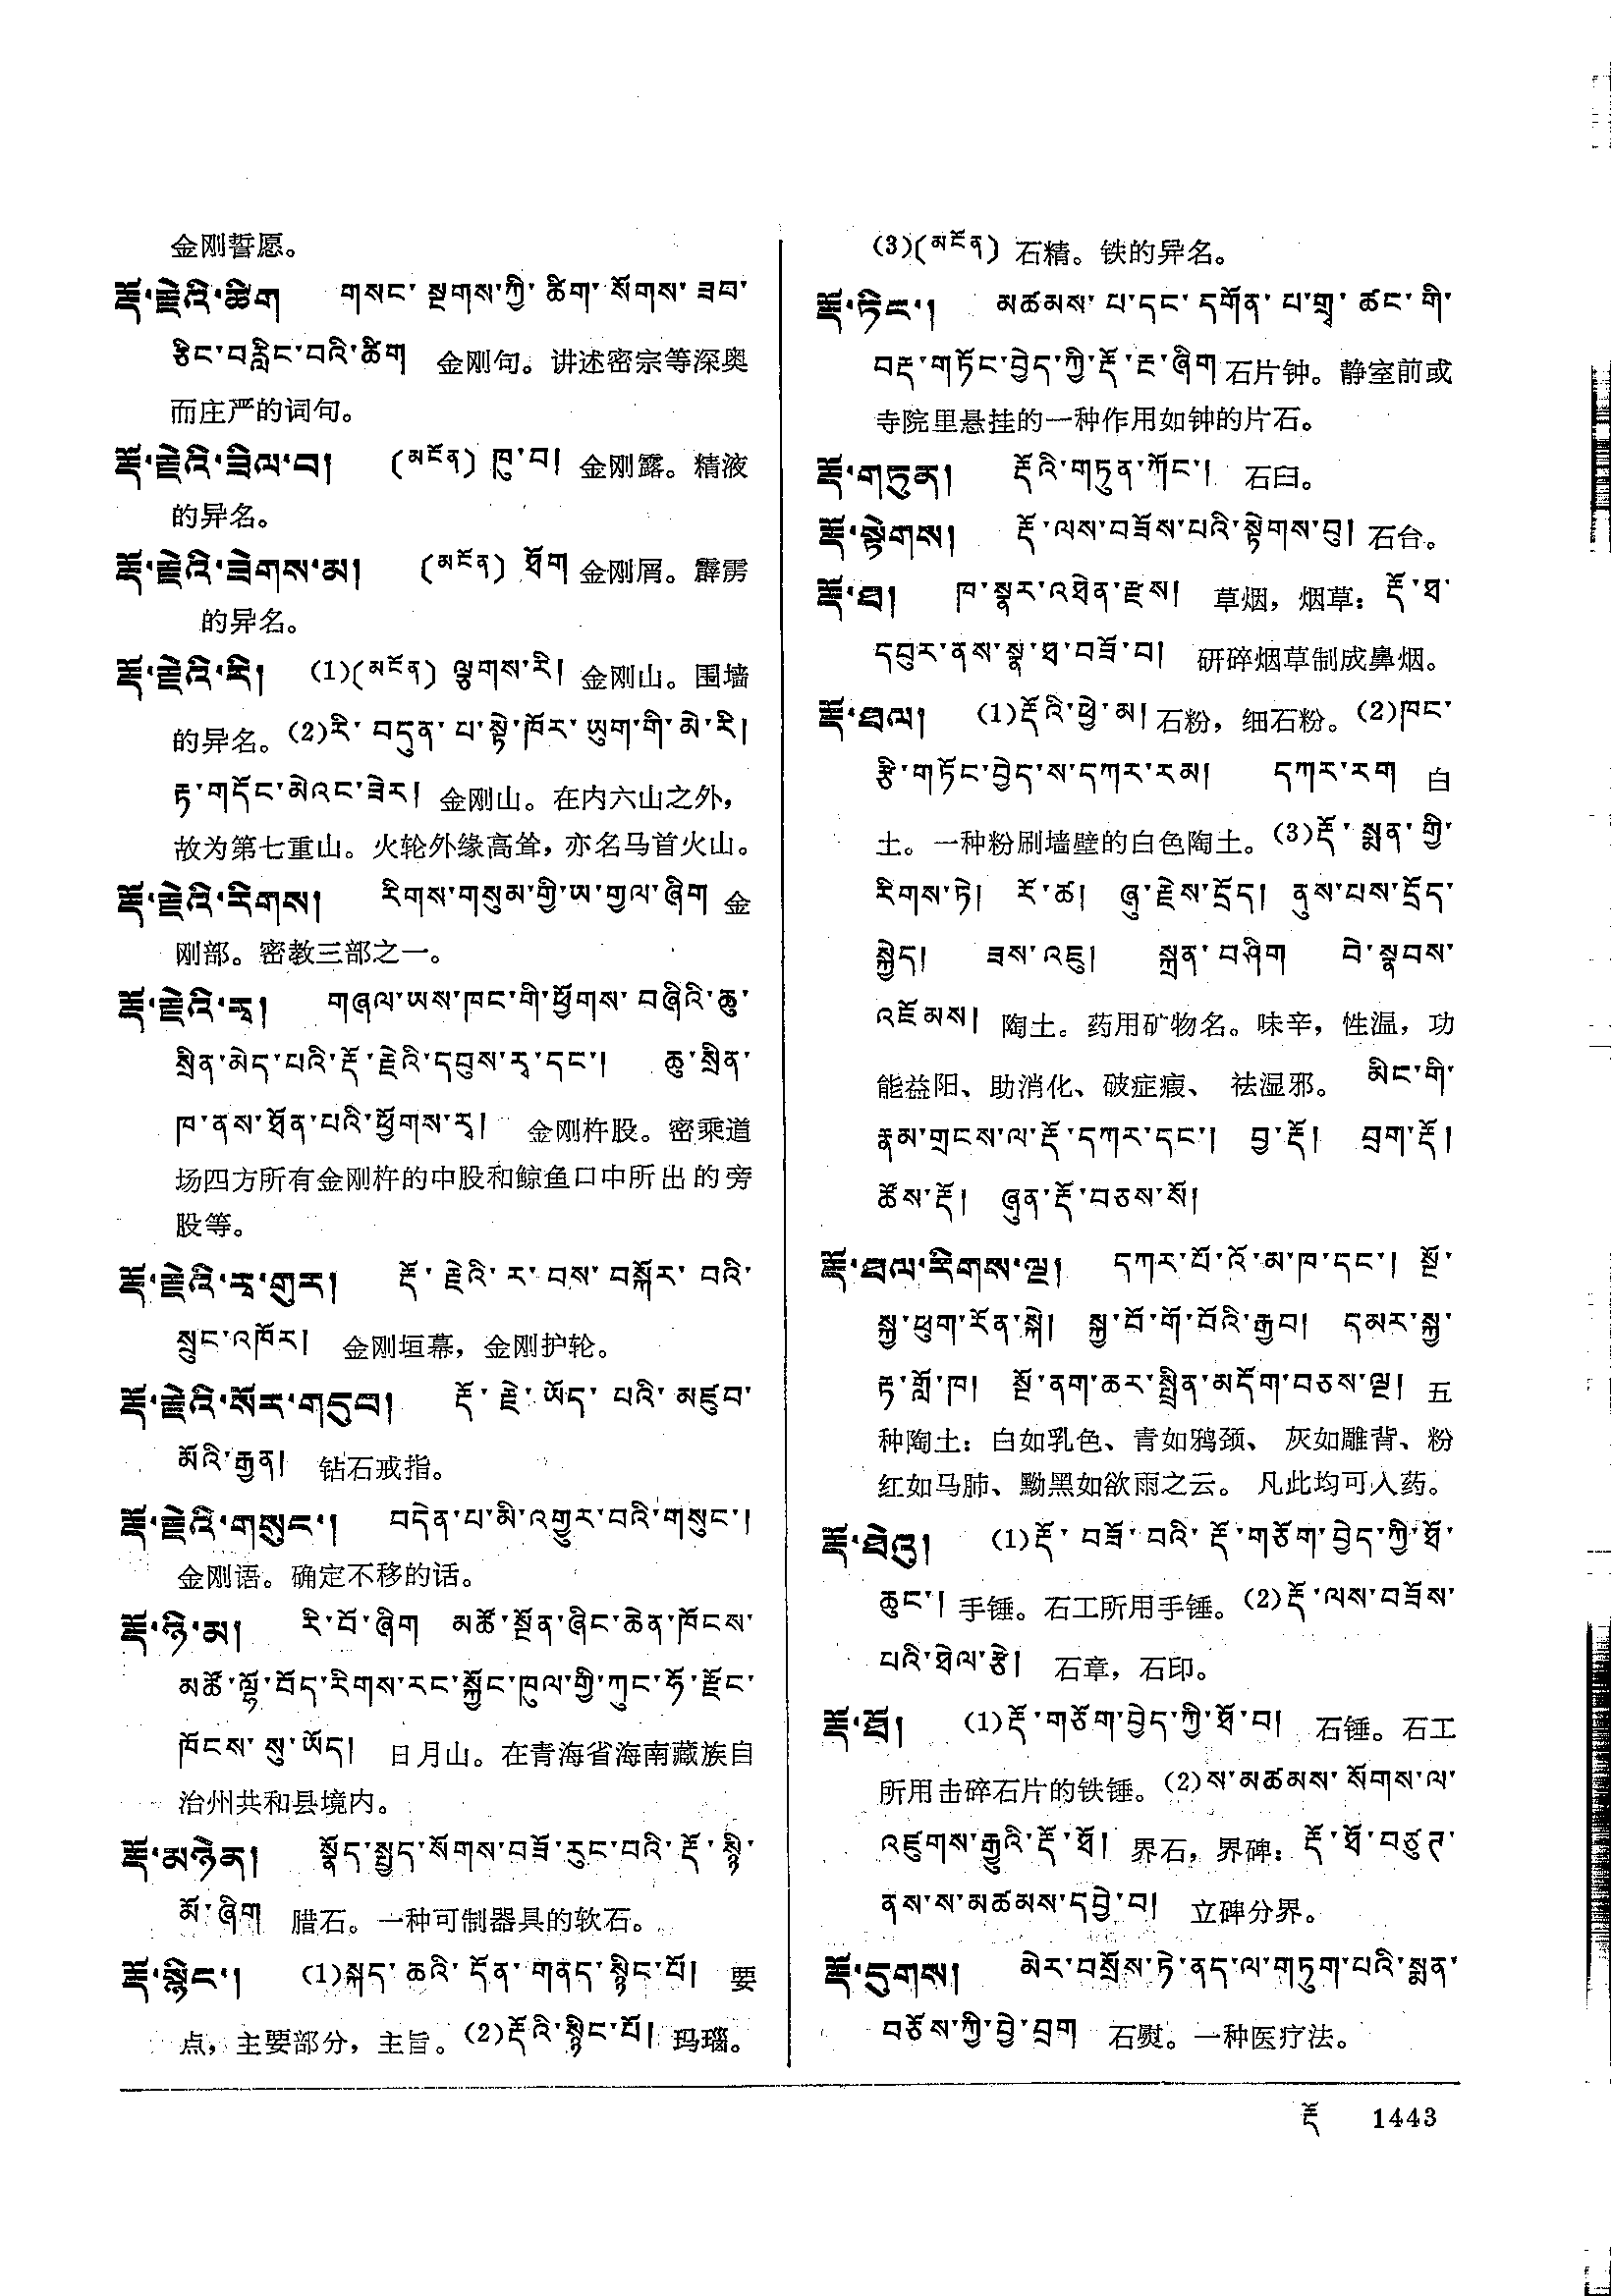 金刚誓愿。
རྡོ་རྗེའི་ཚིག གསང་སྔགས་ཀྱི་ཚིག་སོགས་ཟབ་
ཅིང་བརླིང་བའི་ཚིག 金刚句。讲述密宗等深奥
而庄严的词句。
རྡོ་རྗེའི་ཟིལ་བ། (མངོན) ཁུ་བ། 金刚露。精液
的异名。
རྡོ་རྗེའི་ཟེགས་མ། (མངོན) ཐོག 金刚屑。霹雳
的异名。
རྡོ་རྗེའི་རི། (1)(མངོན) ལྕགས་རི། 金刚山。围墙
的异名。(2)རི་བདུན་པ་སྟེ་ཁོར་ཡུག་གི་མེ་རི།
རྟ་གདོང་མེའང་ཟེར། 金刚山。在内六山之外，
故为第七重山。火轮外缘高耸，亦名马首火山。
རྡོ་རྗེའི་རིགས། རིགས་གསུམ་གྱི་ཡ་གྱལ་ཞིག 金
刚部。密教三部之一。
རྡོ་རྗེའི་རྭ། གཞལ་ཡས་ཁང་གི་ཕྱོགས་བཞིའི་ཆུ་
སྲིན་མེད་པའི་རྡོ་རྗེའི་དབུས་རྭ་དང་། ཆུ་སྲིན་
ཁ་ནས་ཐོན་པའི་ཕྱོགས་རྭ། 金刚杵股。密乘道
场四方所有金刚杵的中股和鲸鱼口中所出的旁
股等。
རྡོ་རྗེའི་ར་གུར། རྡོ་རྗེའི་ར་བས་བསྐོར་བའི་
སྲུང་འཁོར། 金刚垣幕，金刚护轮。
རྡོ་རྗེའི་སོར་གདུབ། རྡོ་རྗེ་ཡོད་པའི་མཛུབ་
མོའི་རྒྱན། 钻石戒指。
རྡོ་རྗེའི་གསུང་། བདེན་པ་མི་འགྱུར་བའི་གསུང་།
金刚语。确定不移的话。
རྡོ་ཉི་མ། རི་བོ་ཞིག མཚོ་སྔོན་ཞིང་ཆེན་ཁོངས་
མཚོ་ལྷོ་བོད་རིགས་རང་སྐྱོང་ཁུལ་གྱི་ཀུང་ཧོ་རྫོང་
ཁོངས་སུ་ཡོད། 日月山。在青海省海南藏族自
治州共和县境内。
རྡོ་མཉེན། སྣོད་སྤྱད་སོགས་བཟོ་རུང་བའི་རྡོ་སྙི་
མོ་ཞིག 腊石。一种可制器具的软石。
རྡོ་སྙིང་། (1)སྐད་ཆའི་དོན་གནད་སྙིང་པོ། 要
点，主要部分，主旨。(2)རྡོའི་སྙིང་པོ། 玛瑙。
(3)(མངོན) 石精。铁的异名。
རྡོ་ཏིང་། མཚམས་པ་དང་དགོན་པ་གྲྭ་ཚང་གི་
བརྡ་གཏོང་བྱེད་ཀྱི་རྡོ་ང་ཞིག 石片钟。静室前或
寺院里悬挂的一种作用如钟的片石。
རྡོ་གཏུན། རྡོའི་གཏུན་ཀོང་། 石臼。
རྡོ་སྟེགས། རྡོ་ལས་བཟོས་པའི་སྟེགས་བུ། 石台。
རྡོ་ཐ། ཁ་སྣར་འཐེན་རྫས། 草烟，烟草：རྡོ་ཐ་
དབུར་ནས་སྣ་ཐ་བཟོ་བ། 研碎烟草制成鼻烟。
རྡོ་ཐལ། (1)རྡོའི་ཕྱེ་མ། 石粉，细石粉。(2)ཁང་
རྩི་གཏོང་བྱེད་ས་དཀར་རམ། དཀར་རག 白
土。一种粉刷墙壁的白色陶土。(3)རྡོ་སྨན་གྱི་
རིགས་ཏེ། རོ་ཚ། ཞུ་རྗེས་དྲོད། ནུས་པས་དྲོད་
སྐྱེད། ཟས་འཇུ། སྐྲན་བཤིག བེ་སྣབས་
འཇོམས། 陶土。药用矿物名。味辛，性温，功
能益阳、助消化、破症瘕、祛湿邪。 མིང་གི་
རྣམ་གྲངས་ལ་རྡོ་དཀར་དང་། བྱ་རྡོ། བྲག་རྡོ།
ཚོས་རྡོ། ཞུན་རྡོ་བཅས་སོ།
རྡོ་ཐལ་རིགས་ལྔ། དཀར་པོ་འོ་མ་ཁ་དང་། སྔོ་
སྐྱ་ཕུག་རོན་སྐེ། སྐྱ་བོ་གོ་བོའི་རྒྱབ། དམར་སྐྱ་
རྟ་གློ་ཁ། སྔོ་ནག་ཆར་སྤྲིན་མདོག་བཅས་ལྔ། 五
种陶土：白如乳色、青如鸦颈、灰如雕背、粉
红如马肺、黝黑如欲雨之云。凡此均可入药。
རྡོ་ཐེའུ། (1)རྡོ་བཟོ་བའི་རྡོ་གཅོག་བྱེད་ཀྱི་ཐོ་
ཆུང་། 手锤。石工所用手锤。(2)རྡོ་ལས་བཟོས་
པའི་ཐེལ་རྩེ། 石章，石印。
རྡོ་ཐོ། (1)རྡོ་གཅོག་བྱེད་ཀྱི་ཐོ་བ། 石锤。石工
所用击碎石片的铁锤。(2)ས་མཚམས་སོགས་ལ་
འཛུགས་རྒྱུའི་རྡོ་ཐོ། 界石，界碑：རྡོ་ཐོ་བཙུཊ་
ནས་ས་མཚམས་དབྱེ་བ། 立碑分界。
རྡོ་དུགས། མེར་བསྲོས་ཏེ་ནད་ལ་གཏུག་པའི་སྨན་
བཅོས་ཀྱི་བྱེ་བྲག 石熨。一种医疗法。
རྡོ 1443